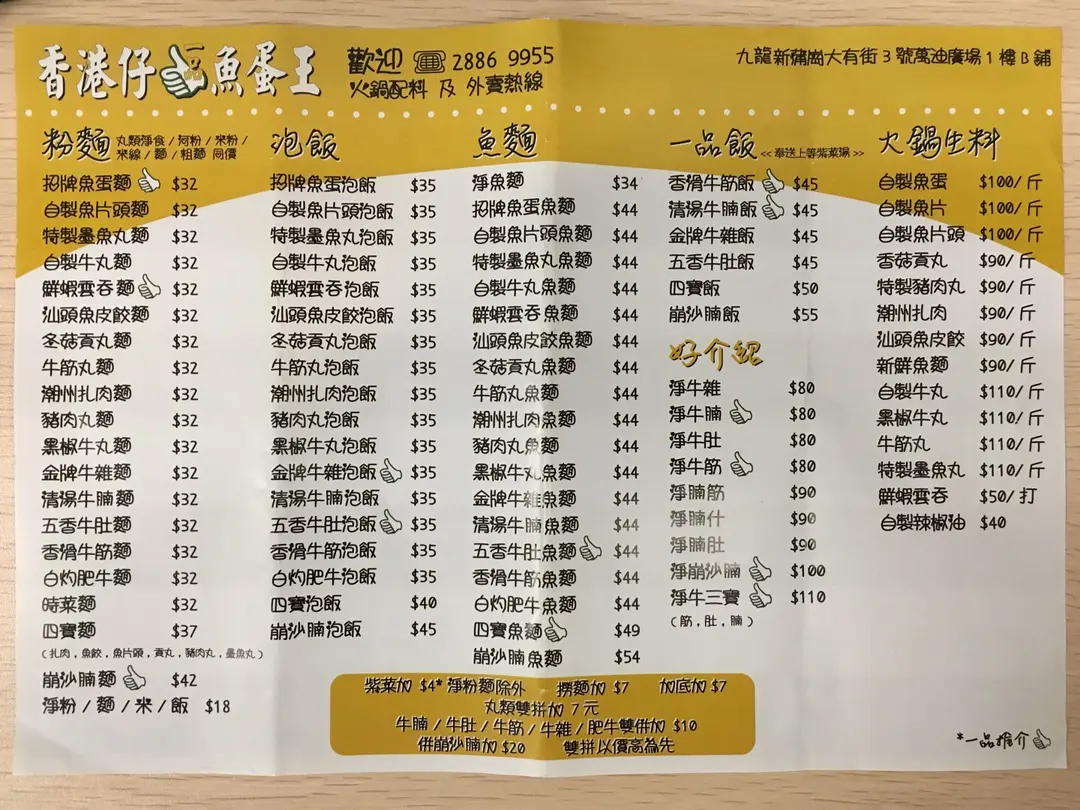 香港仔一品魚蛋王
歡迎 ☎ 2886 9955
火鍋配料 及 外賣熱線
九龍新蒲崗大有街 3 號萬迪廣場 1 樓 B 舖
粉麵 丸類淨食 / 河粉 / 米粉 /
米線 / 麵 / 粗麵 同價
招牌魚蛋麵 $32
自製魚片頭麵 $32
特製墨魚丸麵 $32
自製牛丸麵 $32
鮮蝦雲吞麵 $32
汕頭魚皮餃麵 $32
冬菇貢丸麵 $32
牛筋丸麵 $32
潮州扎肉麵 $32
豬肉丸麵 $32
黑椒牛丸麵 $32
金牌牛雜麵 $32
清湯牛腩麵 $32
五香牛肚麵 $32
香滑牛筋麵 $32
白灼肥牛麵 $32
時菜麵 $32
四寶麵 $37
( 扎肉 , 魚餃 , 魚片頭 , 貢丸 , 豬肉丸 , 墨魚丸 )
崩沙腩麵 $42
淨粉 / 麵 / 米 / 飯 $18
泡飯
招牌魚蛋泡飯 $35
自製魚片頭泡飯 $35
特製墨魚丸泡飯 $35
自製牛丸泡飯 $35
鮮蝦雲吞泡飯 $35
汕頭魚皮餃泡飯 $35
冬菇貢丸泡飯 $35
牛筋丸泡飯 $35
潮州扎肉泡飯 $35
豬肉丸泡飯 $35
黑椒牛丸泡飯 $35
金牌牛雜泡飯 $35
清湯牛腩泡飯 $35
五香牛肚泡飯 $35
香滑牛筋泡飯 $35
白灼肥牛泡飯 $35
四寶泡飯 $40
崩沙腩泡飯 $45
魚麵
淨魚麵 $34
招牌魚蛋魚麵 $44
自製魚片頭魚麵 $44
特製墨魚丸魚麵 $44
自製牛丸魚麵 $44
鮮蝦雲吞魚麵 $44
汕頭魚皮餃魚麵 $44
冬菇貢丸魚麵 $44
牛筋丸魚麵 $44
潮州扎肉魚麵 $44
豬肉丸魚麵 $44
黑椒牛丸魚麵 $44
金牌牛雜魚麵 $44
清湯牛腩魚麵 $44
五香牛肚魚麵 $44
香滑牛筋魚麵 $44
白灼肥牛魚麵 $44
四寶魚麵 $49
崩沙腩魚麵 $54
一品飯 << 奉送上等紫菜湯 >>
香滑牛筋飯 $45
清湯牛腩飯 $45
金牌牛雜飯 $45
五香牛肚飯 $45
四寶飯 $50
崩沙腩飯 $55
好介紹
淨牛雜 $80
淨牛腩 $80
淨牛肚 $80
淨牛筋 $80
淨腩筋 $90
淨腩什 $90
淨腩肚 $90
淨崩沙腩 $100
淨牛三寶 $110
( 筋 , 肚 , 腩 )
火鍋生料
自製魚蛋 $100/ 斤
自製魚片 $100/ 斤
自製魚片頭 $100/ 斤
香菇貢丸 $90/ 斤
特製豬肉丸 $90/ 斤
潮州扎肉 $90/ 斤
汕頭魚皮餃 $90/ 斤
新鮮魚麵 $90/ 斤
自製牛丸 $110/ 斤
黑椒牛丸 $110/ 斤
牛筋丸 $110/ 斤
特製墨魚丸 $110/ 斤
鮮蝦雲吞 $50/ 打
自製辣椒油 $40
紫菜加 $4* 淨粉麵除外 撈麵加 $7 加底加 $7
丸類雙拼加 7 元
牛腩 / 牛肚 / 牛筋 / 牛雜 / 肥牛雙併加 $10
併崩沙腩加 $20 雙拼以價高為先
*一品推介